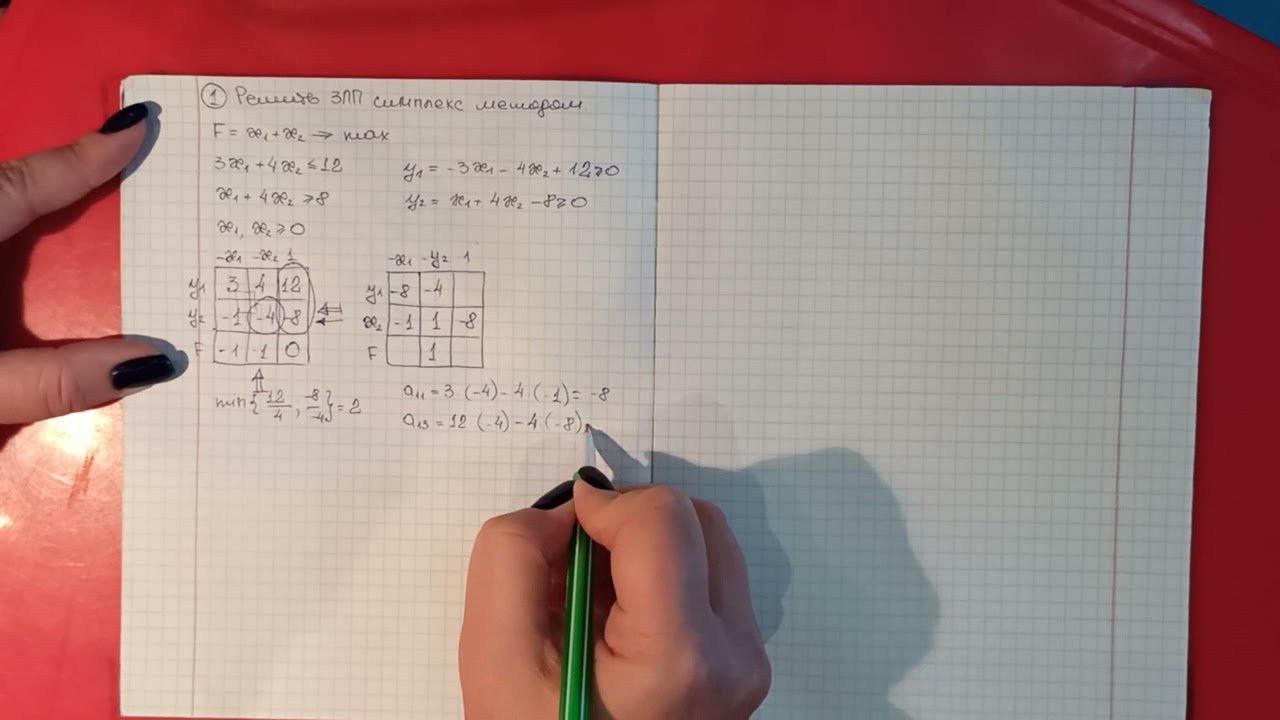 ① Решить ЗЛП симплекс методом
F = x₁ + x₂ → max
3x₁ + 4x₂ ≤ 12
y₁ = -3x₁ - 4x₂ + 12 ≥ 0
x₁ + 4x₂ ≥ 8
y₂ = x₁ + 4x₂ - 8 ≥ 0
x₁, x₂ ≥ 0
-x₁ -x₂ 1
y₁ 3 4 12
y₂ -1 -4 -8
F -1 -1 0
min{12/4, -8/-4} = 2
-x₁ -y₂ 1
y₁ -8 -4
x₂ -1 1 -8
F 1
a₁₁ = 3·(-4) - 4·(-1) = -8
a₁₃ = 12·(-4) - 4·(-8)